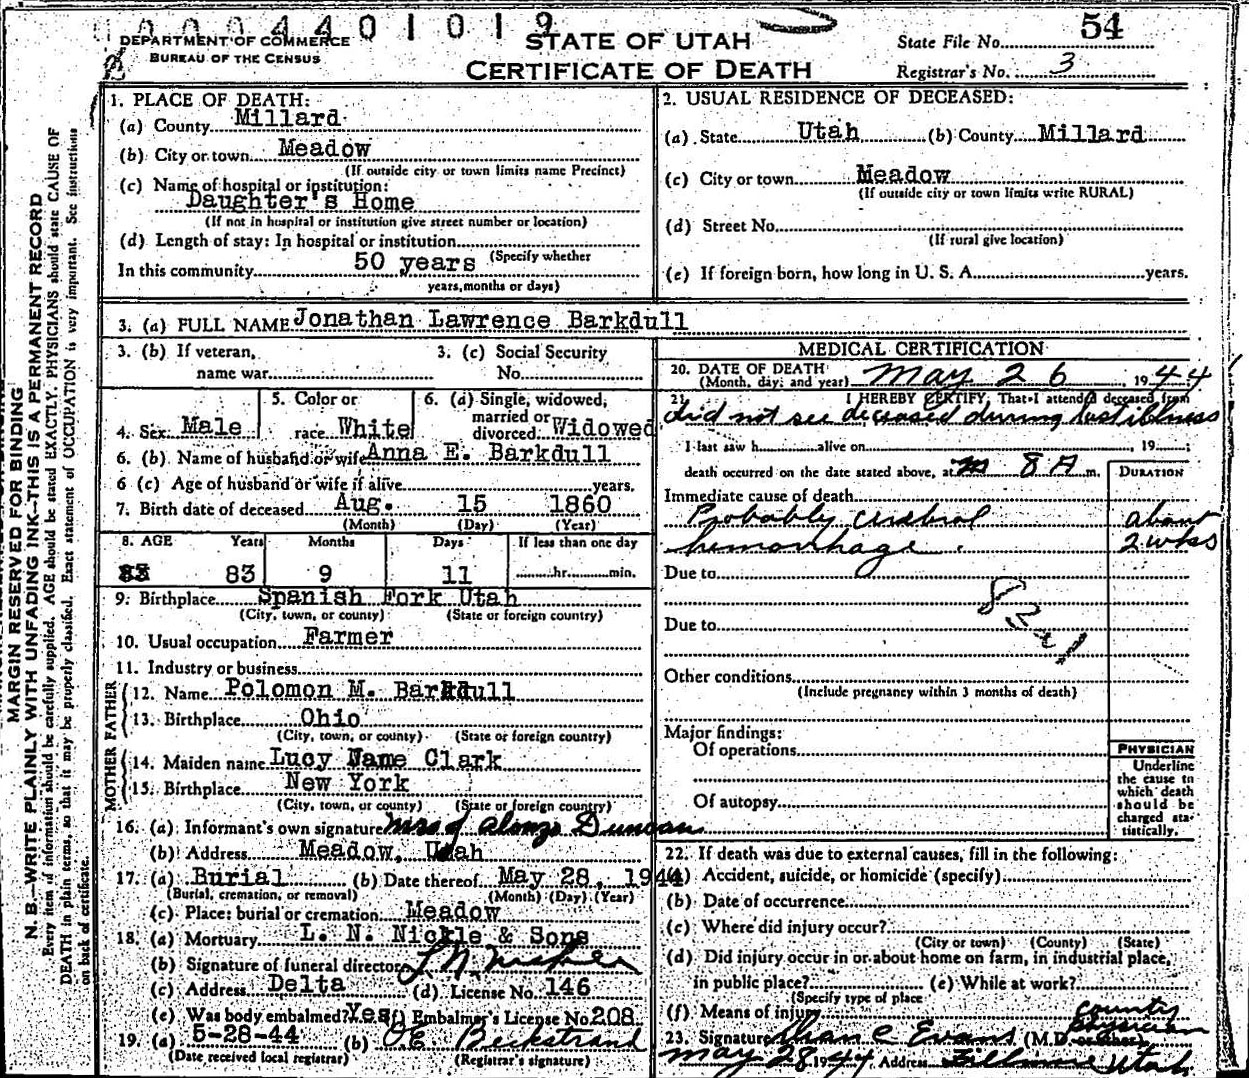 0004401019
DEPARTMENT OF COMMERCE
BUREAU OF THE CENSUS
STATE OF UTAH
CERTIFICATE OF DEATH
State File No. 54
Registrar's No. 3
MARGIN RESERVED FOR BINDING
N. B.—WRITE PLAINLY WITH UNFADING INK—THIS IS A PERMANENT RECORD
Every item of information should be carefully supplied. AGE should be stated EXACTLY. PHYSICIANS should state CAUSE OF
DEATH in plain terms, so that it may be properly classified. Exact statement of OCCUPATION is very important. See instructions
on back of certificate.
1. PLACE OF DEATH:
(a) County Millard
(b) City or town Meadow
(If outside city or town limits name Precinct)
(c) Name of hospital or institution:
Daughter's Home
(If not in hospital or institution give street number or location)
(d) Length of stay: In hospital or institution
(Specify whether
In this community 50 years
years, months or days)
2. USUAL RESIDENCE OF DECEASED:
(a) State Utah (b) County Millard
(c) City or town Meadow
(If outside city or town limits write RURAL)
(d) Street No.
(If rural give location)
(e) If foreign born, how long in U. S. A. years.
3. (a) FULL NAME Jonathan Lawrence Barkdull
3. (b) If veteran,
name war
3. (c) Social Security
No.
4. Sex Male
5. Color or
race White
6. (a) Single, widowed,
married or
divorced Widowed
6. (b) Name of husband or wife Anna E. Barkdull
6 (c) Age of husband or wife if alive years.
7. Birth date of deceased Aug. 15 1860
(Month) (Day) (Year)
8. AGE Years Months Days If less than one day
83 83 9 11 hr. min.
9. Birthplace Spanish Fork Utah
(City, town, or county) (State or foreign country)
10. Usual occupation Farmer
11. Industry or business
FATHER
12. Name Polomon M. Barkdull
13. Birthplace Ohio
(City, town, or county) (State or foreign country)
MOTHER
14. Maiden name Lucy Name Clark
15. Birthplace New York
(City, town, or county) (State or foreign country)
16. (a) Informant's own signature Mrs J Alonzo Duncan
(b) Address Meadow, Utah
17. (a) Burial (b) Date thereof May 28, 1944
(Burial, cremation, or removal) (Month) (Day) (Year)
(c) Place: burial or cremation Meadow
18. (a) Mortuary L. N. Nickle & Sons
(b) Signature of funeral director L N
(c) Address Delta (d) License No. 146
(e) Was body embalmed? Yes (f) Embalmer's License No. 208
19. (a) 5-28-44 (b) O E Beckstrand
(Date received local registrar) (Registrar's signature)
MEDICAL CERTIFICATION
20. DATE OF DEATH
(Month, day, and year) May 26, 1944
21. I HEREBY CERTIFY, That I attended deceased from
did not see deceased during last illness
I last saw h alive on , 19 ;
death occurred on the date stated above, at m 8 A m.
DURATION
Immediate cause of death
Probably cerebral about
hemorrhage. 2 wks
Due to
Due to
Other conditions
(Include pregnancy within 3 months of death)
Major findings:
Of operations
Of autopsy
PHYSICIAN
Underline
the cause to
which death
should be
charged sta-
tistically.
22. If death was due to external causes, fill in the following:
(a) Accident, suicide, or homicide (specify)
(b) Date of occurrence
(c) Where did injury occur?
(City or town) (County) (State)
(d) Did injury occur in or about home on farm, in industrial place,
in public place? (e) While at work?
(Specify type of place
(f) Means of injury
county
physician
23. Signature Evans (M.D. or other)
May 28 1944, Address Fillmore Utah